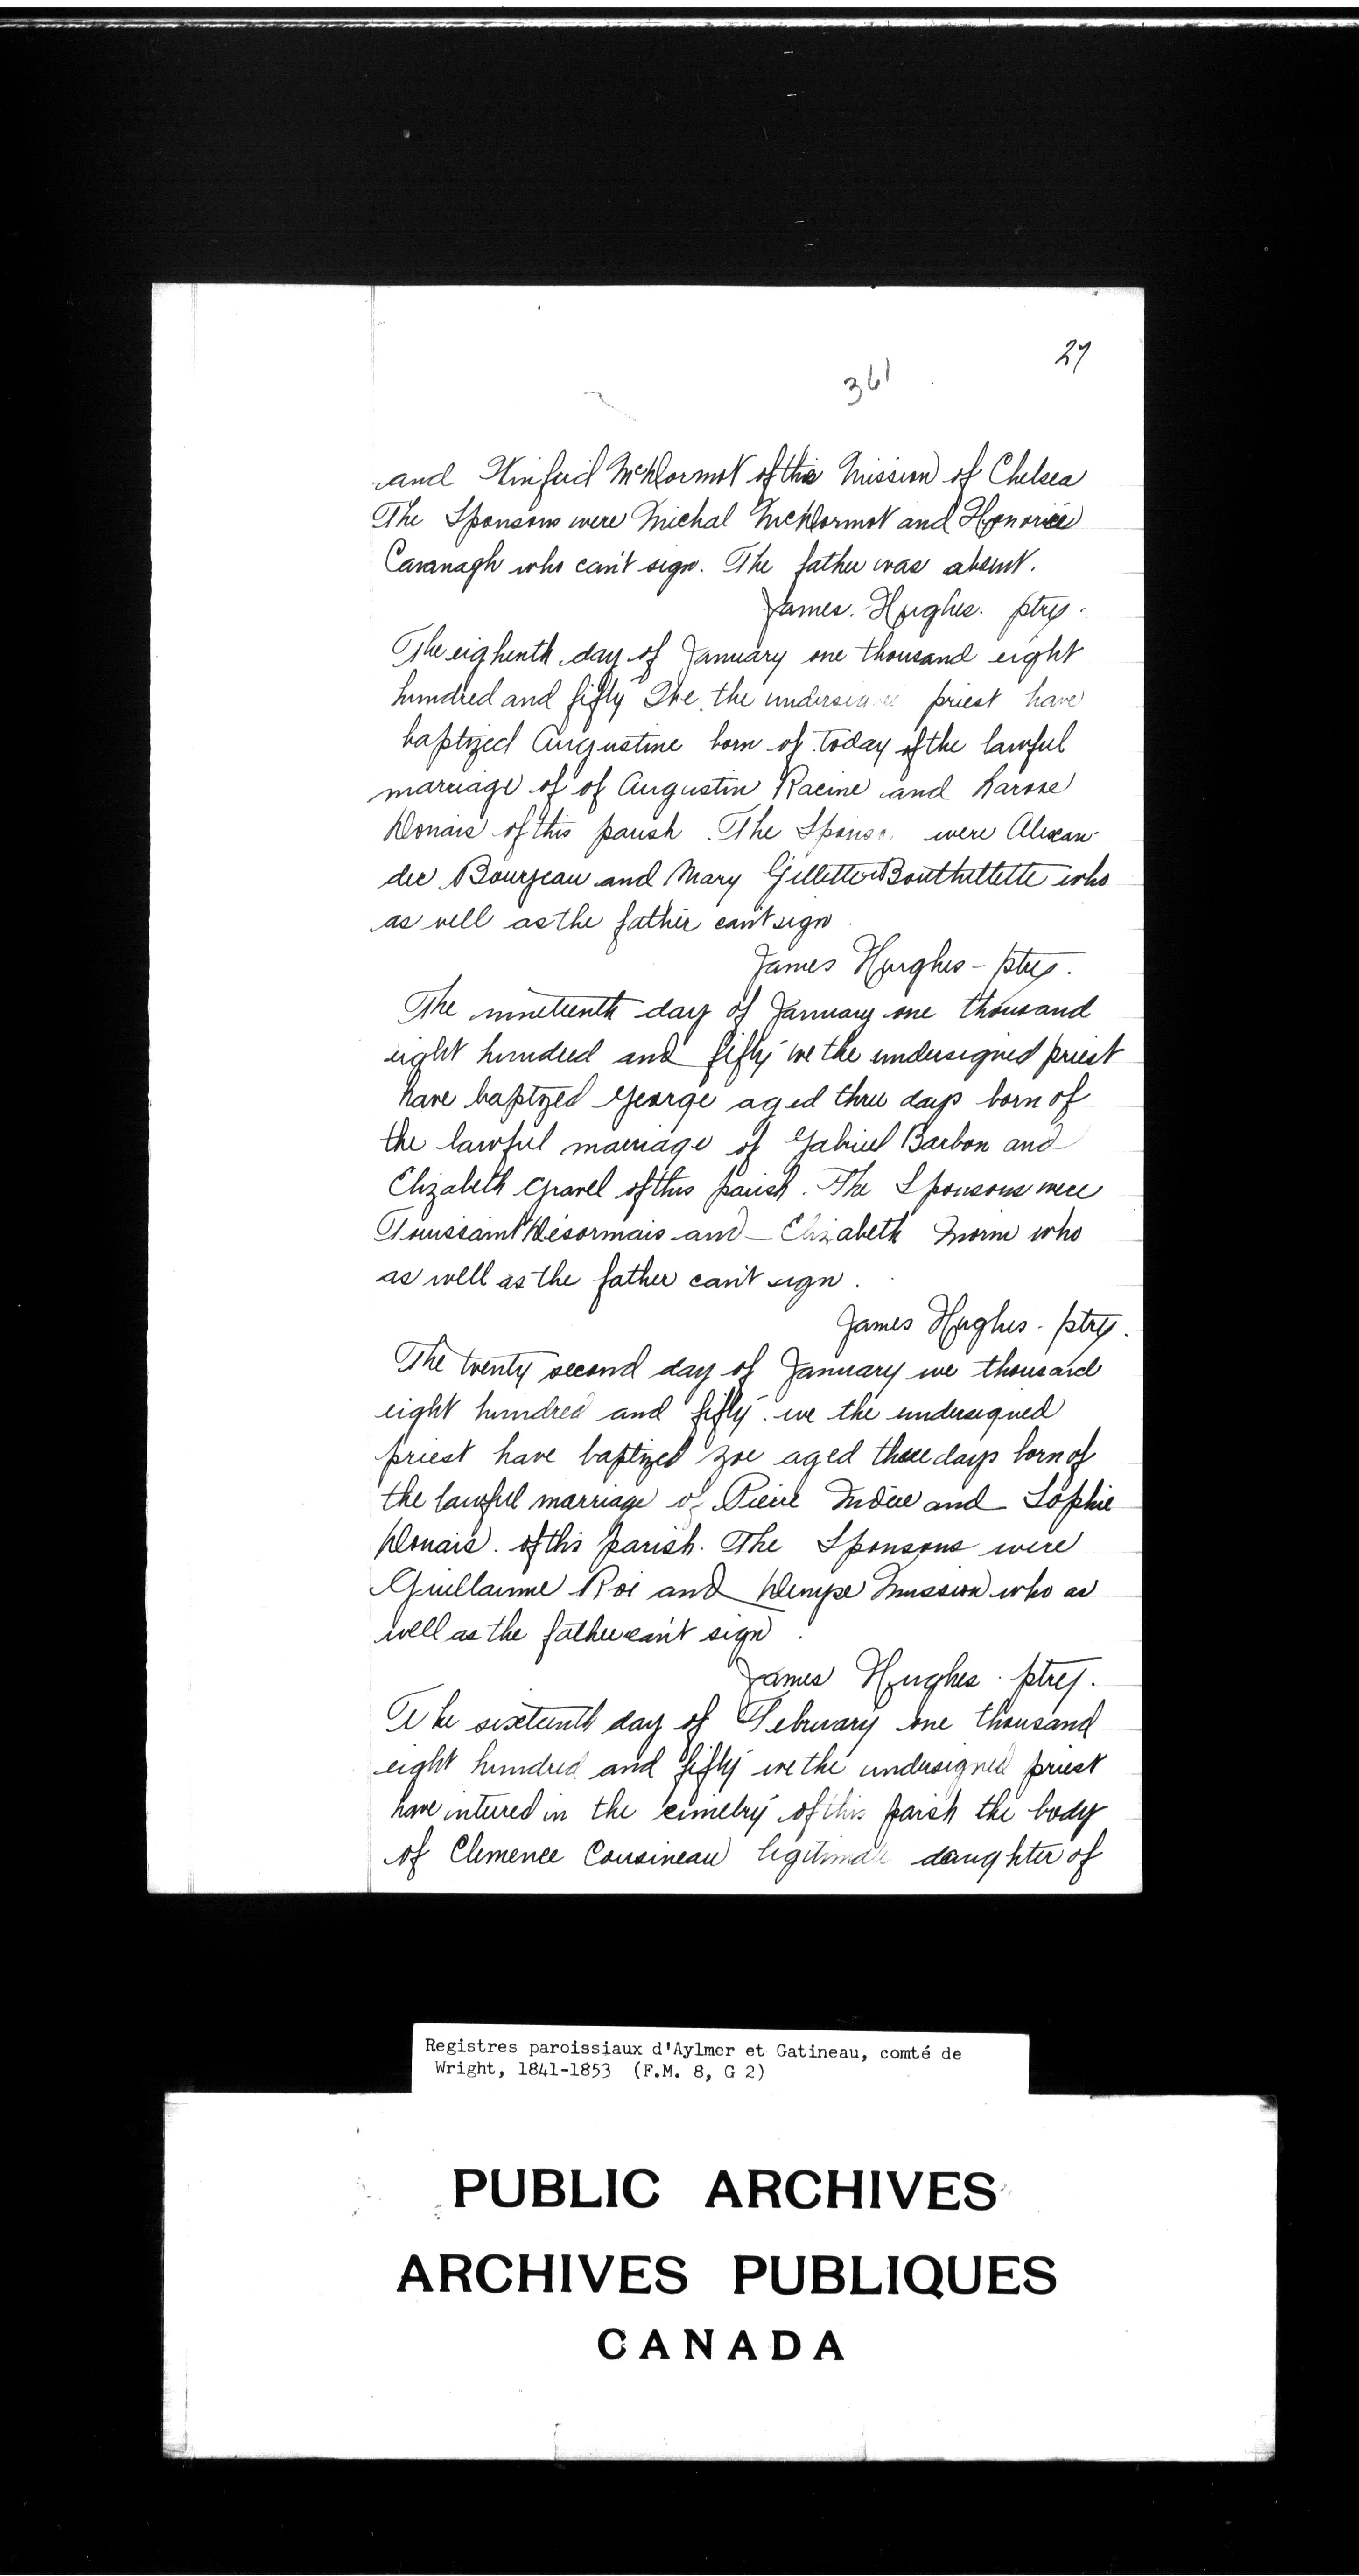 27
361
and Winfrid McDormot of this Mission of Chelsea
The Sponsons were Michal McDormot and Honorice
Cavanagh who can't sign. The father was absent.
James. Hughes. ptre.
The eighenth day of January one thousand eight
hundred and fifty We the priest have
baptized Augustine born of today of the lawful
marriage of of Augustin Racine and Larose
Donais of this parish. The were Alexan-
der Bourgeau and Mary Gillette Bouthillette who
as well as the father can't sign
James Hughes - ptre.
The nineteenth day of January one thousand
eight hundred and fifty we the undersigned priest
have baptized George aged three days born of
the lawful marriage of Gabriel Barbon and
Elizabeth Gravel of this parish. The Sponsons were
Toussaint Désormais and - Elizabeth Morin who
as well as the father can't sign.
James Hughes - ptre.
The twenty second day of January we thousand
eight hundred and fifty. we the undersigned
priest have baptized Zoe aged three days born of
the lawful marriage of Pierre and Sophie
Donais. of this parish. The Sponsons were
Guillaume Roi and who as
well as the father can't sign.
James Hughes. ptre.
The sixteenth day of February one thousand
eight hundred and fifty we the undersigned priest
have intured in the cimetry of this parish the body
of Clemence Cousineau legitimate daughter of
Registres paroissiaux d'Aylmer et Gatineau, comté de
Wright, 1841-1853 (F.M. 8, G 2)
PUBLIC ARCHIVES
ARCHIVES PUBLIQUES
CANADA